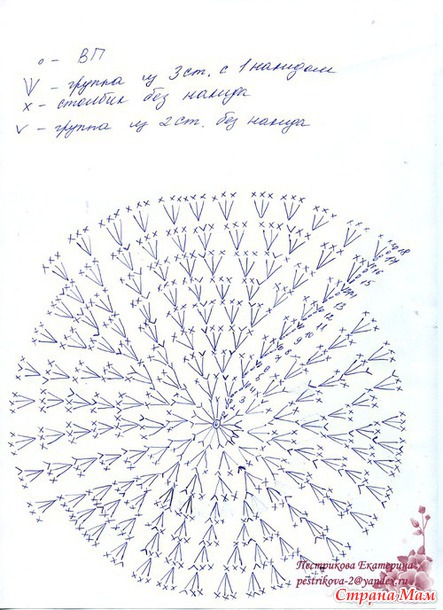 о - ВП
V - группа из 3 ст. с 1 накидом
х - столбик без накида
v - группа из 2 ст. без накида
Пестрикова Екатерина
pestrikova-2@yandex.ru
Страна Мам